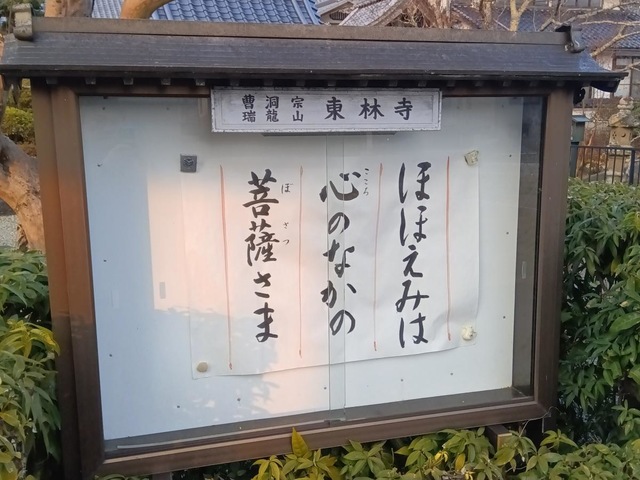 曹洞宗
瑞龍山
東林寺
ほほえみは
心のなかの
こころ
菩薩さま
ぼさつ